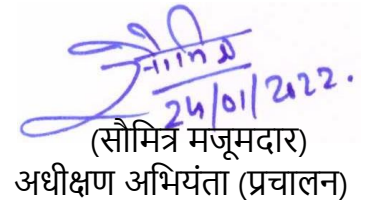 सौमित्र
24/01/2022.
(सौमित्र मजूमदार)
अधीक्षण अभियंता (प्रचालन)